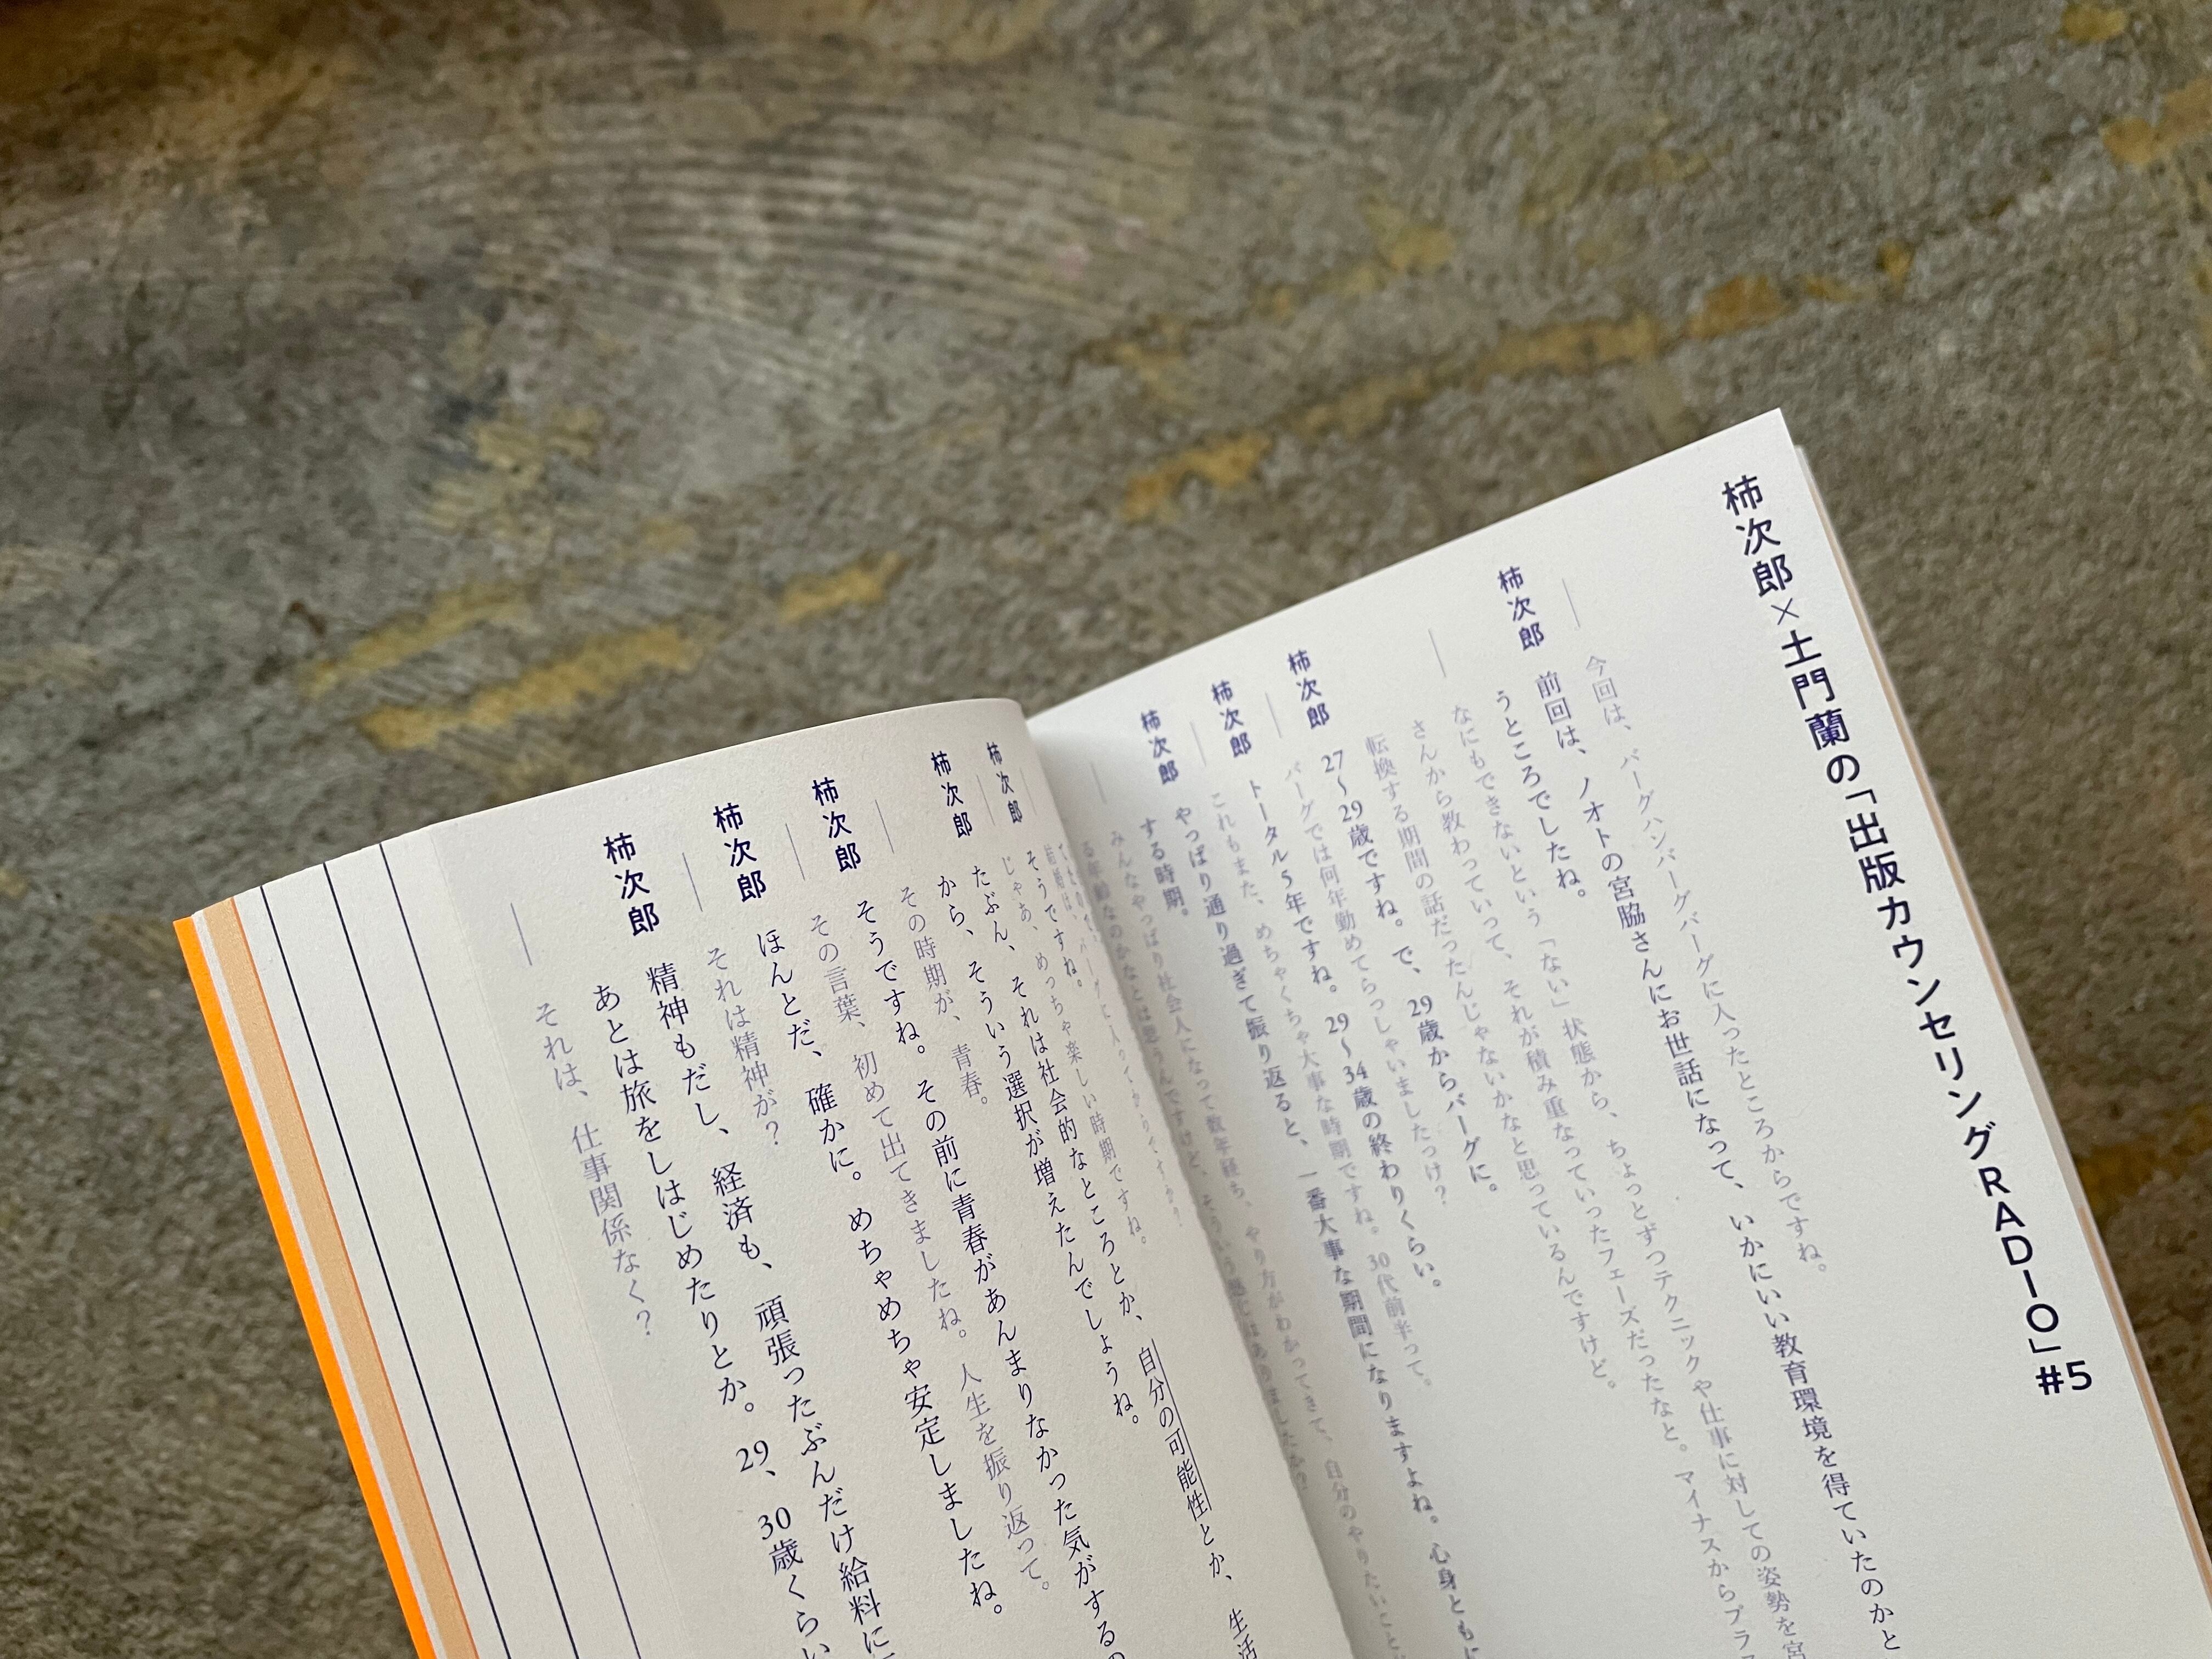 柿次郎×土門蘭の「出版カウンセリングRADIO」#5
― 今回は、バーグハンバーグバーグに入ったところからですね。
柿次郎 前回は、ノオトの宮脇さんにお世話になって、いかにいい教育環境を得ていたのかと
うところでしたね。
― なにもできないという「ない」状態から、ちょっとずつテクニックや仕事に対しての姿勢を宮
さんから教わっていって、それが積み重なっていったフェーズだったなと。マイナスからプラ
転換する期間の話だったんじゃないかなと思っているんですけど。
柿次郎 27〜29歳ですね。で、29歳からバーグに。
― バーグでは何年勤めてらっしゃいましたっけ?
柿次郎 トータル5年ですね。29〜34歳の終わりくらい。
― これもまた、めちゃくちゃ大事な時期ですね。30代前半って。
柿次郎 やっぱり通り過ぎて振り返ると、一番大事な期間になりますよね。心身ともに
する時期。
― みんなやっぱり社会人になって数年経ち、やり方がわかってきて、自分のやりたいこと
る年齢なのかなとは思うんですけど、そういう感じはありましたか?
柿次郎 そうですね。
― じゃあ、めっちゃ楽しい時期ですね。
柿次郎 たぶん、それは社会的なところとか、自分の可能性とか、生活
から、そういう選択が増えたんでしょうね。
― その時期が、青春。
柿次郎 そうですね。その前に青春があんまりなかった気がするの
― その言葉、初めて出てきましたね。人生を振り返って。
柿次郎 ほんとだ、確かに。めちゃめちゃ安定しましたね。
― それは精神が?
柿次郎 精神もだし、経済も、頑張ったぶんだけ給料に
あとは旅をしはじめたりとか。29、30歳くらい
― それは、仕事関係なく?